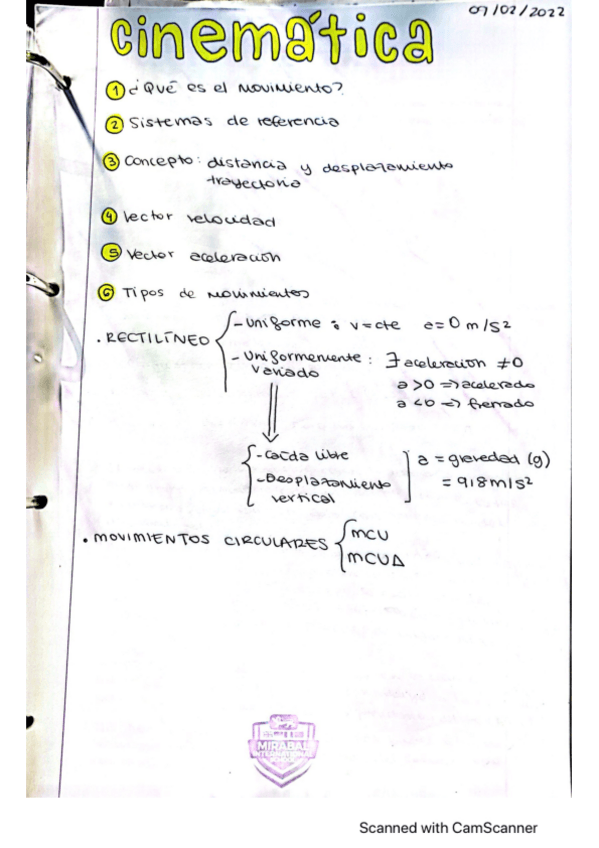 07/02/2022
cinemática
① ¿Qué es el movimiento?
② Sistemas de referencia
③ Concepto: distancia y desplazamiento
trayectoria
④ Vector velocidad
⑤ Vector aceleración
⑥ Tipos de movimientos
. RECTILÍNEO
- Uniforme : v=cte a=0 m/s²
- Uniformemente : ∃ aceleración ≠0
variado
a >0 => acelerado
a <0 => frenado
- Caída libre
- Desplazamiento
vertical
a = gravedad (g)
= 9,8 m/s²
. MOVIMIENTOS CIRCULARES
MCU
MCUA
MIRABAL
Scanned with CamScanner